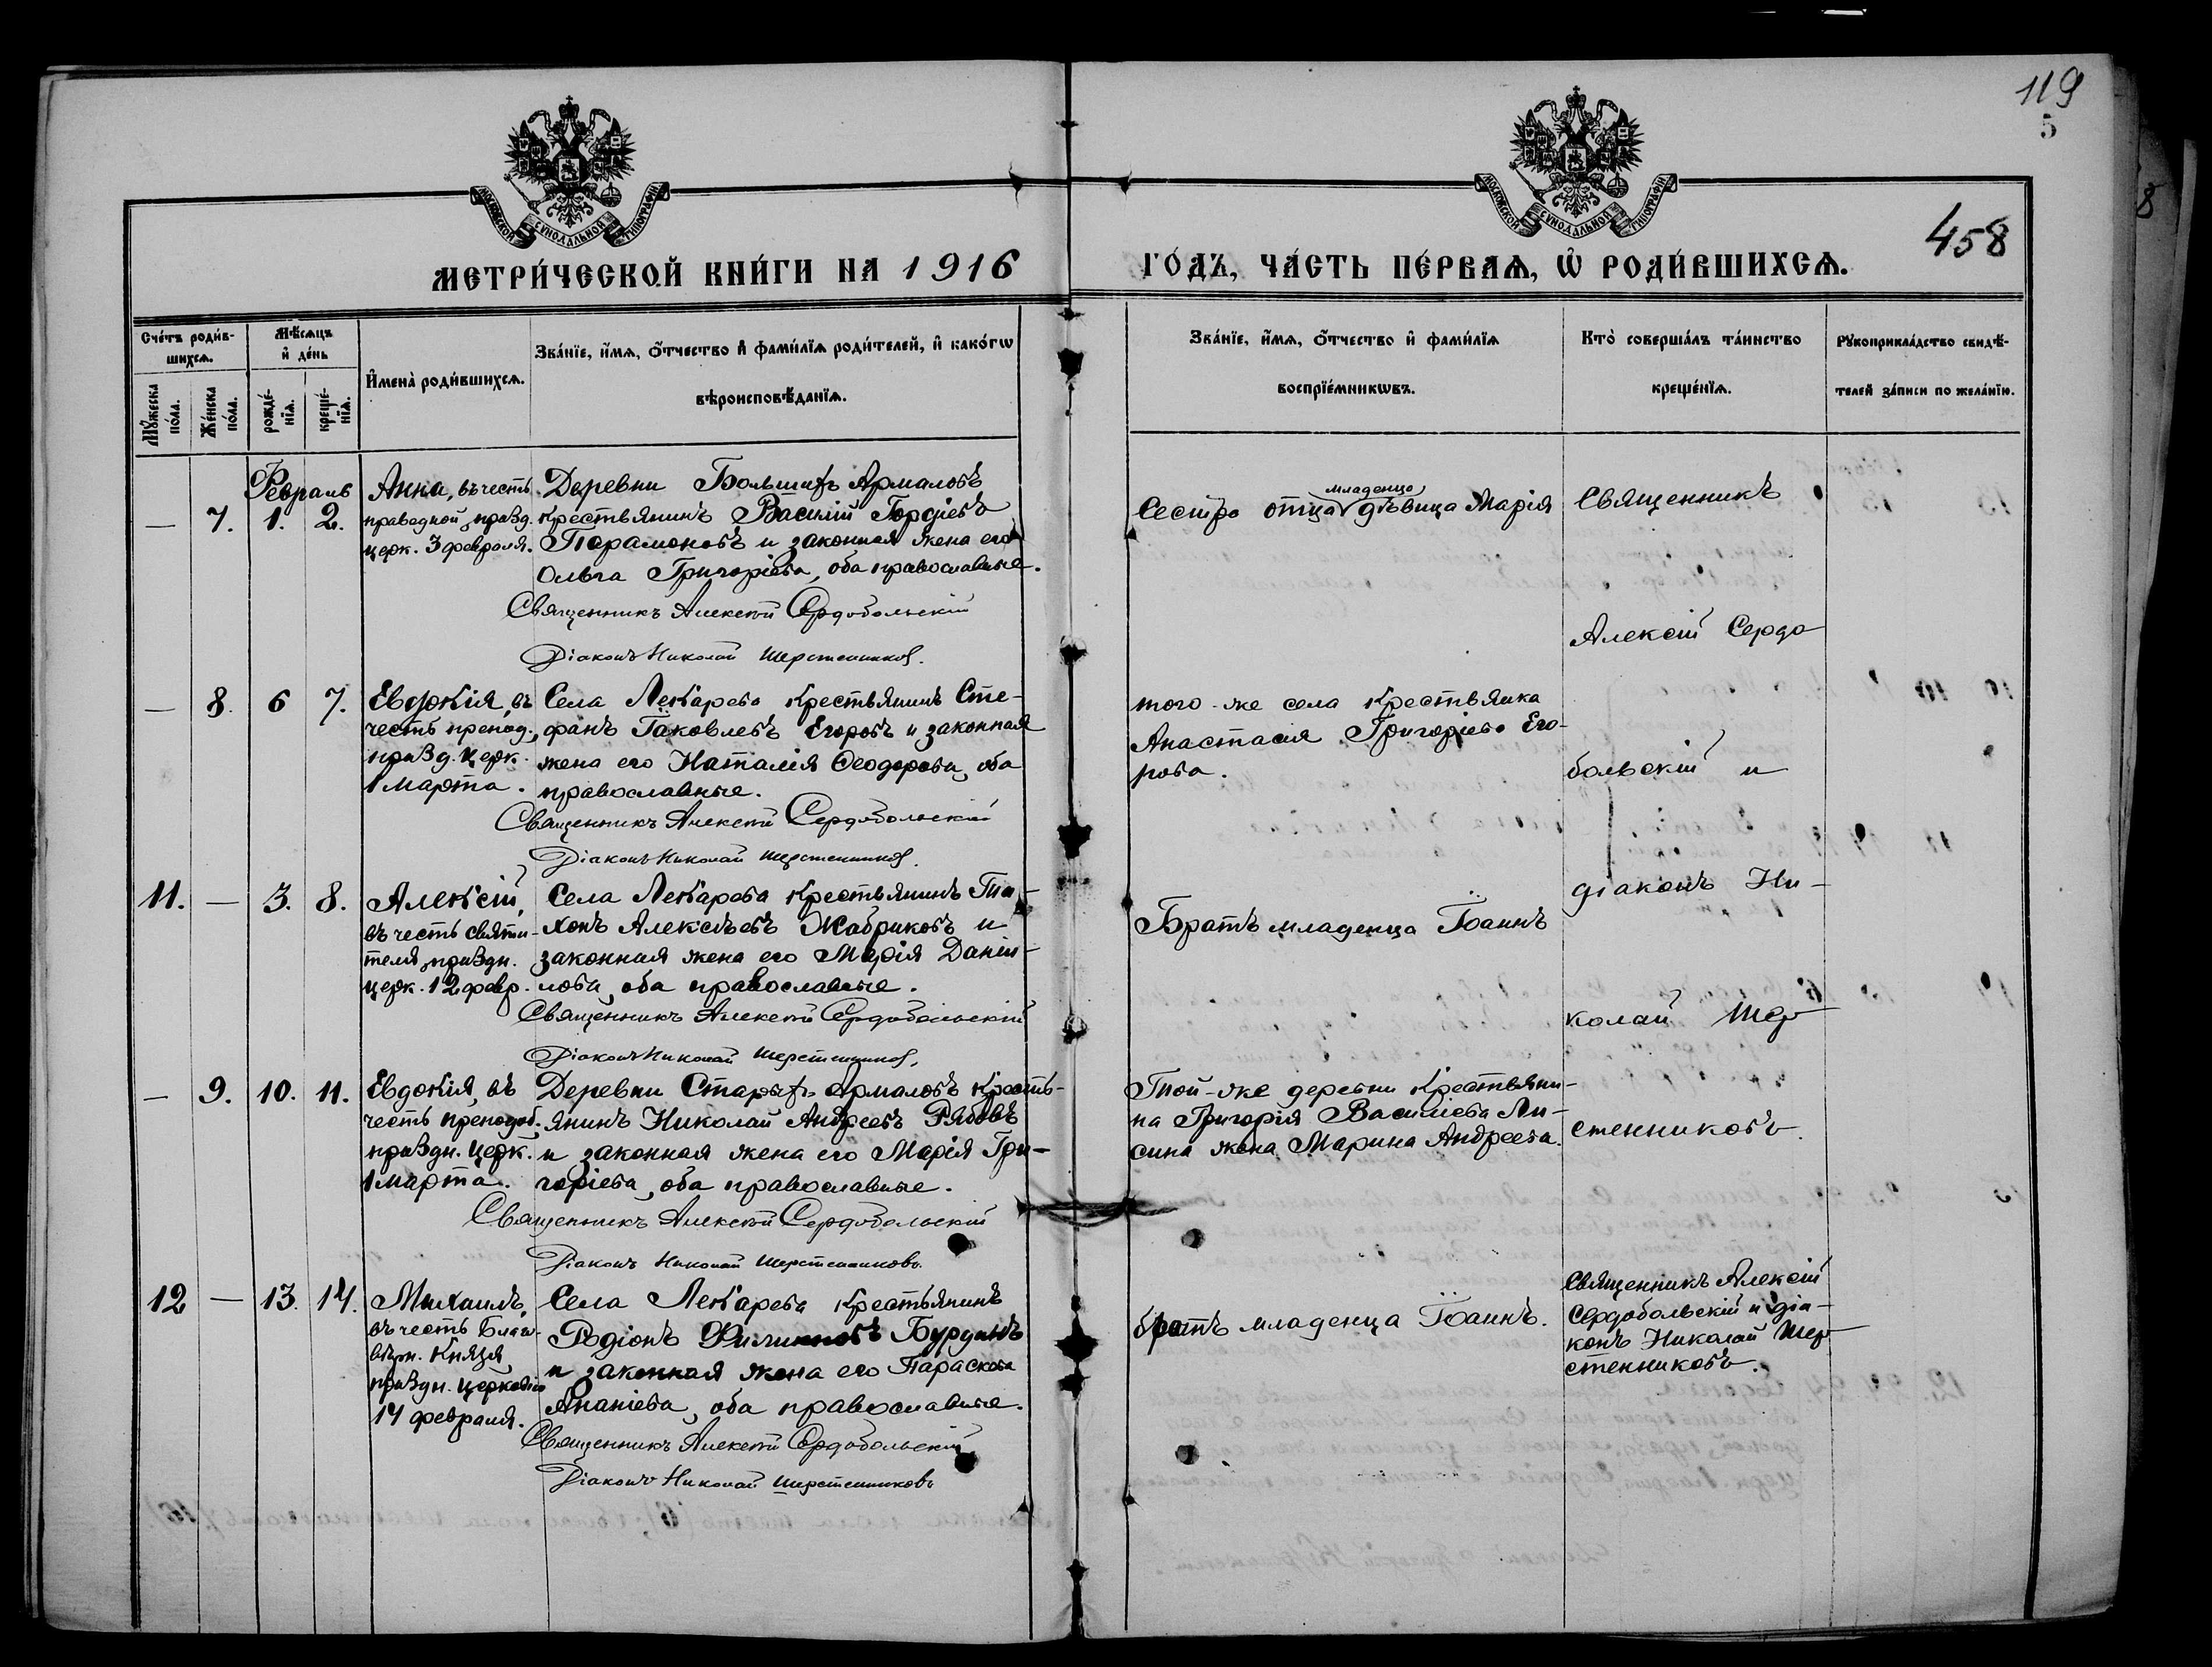 119
5
458
МОСКОВСКОЙ СУНОДАЛЬНОЙ ТИПОГРАФІИ
МОСКОВСКОЙ СУНОДАЛЬНОЙ ТИПОГРАФІИ
МЕТРИ́ЧЕСКОЙ КНИ́ГИ НА 1916
ГО́ДЪ, ЧА́СТЬ ПЕ́РВАѦ, Ѡ РОДИ́ВШИХСѦ.
Сче́тъ роди́в-
шихсѧ.
Мѣ́сѧцъ
и҆ де́нь
Мꙋ́жеска
по́ла.
Же́нска
по́ла.
рожде́-
нїѧ.
креще́-
нїѧ.
И҆мена̀ роди́вшихсѧ.
Зва́нїе, и҆́мѧ, ѻ҆́тчество и҆ фами́лїѧ роди́телей, и҆ како́гѡ
вѣроисповѣ́данїѧ.
Зва́нїе, и҆́мѧ, ѻ҆́тчество и҆ фами́лїѧ
воспрїе́мникѡвъ.
Кто̀ соверша́лъ та́инство
креще́нїѧ.
Рꙋкоприкла́дство свидѣ́-
телей за́писи по жела́нїю.
Февраль
— 7. 1. 2.
Анна, въ честь
праведной, празд.
церк. 3 февраля.
Деревни Большихъ Армаловъ
крестьянинъ Василій Гордіевъ
Парамоновъ и законная жена его
Ольга Григоріева, оба православные.
Священникъ Алексій Сердобольскій
Діаконъ Николай Шерстенников.
Сестра отца младенца дѣвица Марія
Священникъ
Алексій Сердо
— 8. 6 7.
Евдокія, въ
честь препод.,
празд. церк.
1 Марта.
Села Лекарева крестьянинъ Сте-
фанъ Іаковлевъ Егоровъ и законная
жена его Наталія Ѳеодорова, оба
православные.
Священникъ Алексій Сердобольскій
Діаконъ Николай Шерстенников.
того-же села крестьянка
Анастасія Григоріева Его-
рова.
больскій и
11. — 3. 8.
Алексій,
въ честь святи-
теля, праздн.
церк. 12 февр.
Села Лекарева крестьянинъ Ти-
хонъ Алексѣевъ Жабриковъ и
законная жена его Марія Даніи-
лова, оба православные.
Священникъ Алексій Сердобольскій
Діаконъ Николай Шерстенников.
Братъ младенца Іоаннъ
діаконъ Ни-
колай Шер-
— 9. 10. 11.
Евдокія, въ
честь преподоб.
праздн. церк.
1 марта.
Деревни Старыхъ Армаловъ кресть-
янинъ Николай Андреевъ Рябовъ
и законная жена его Марія Гри-
горіева, оба православные.
Священникъ Алексій Сердобольскій
Діаконъ Николай Шерстенниковъ
Той-же деревни крестьяни-
на Григорія Василіева Ли-
сина жена Марина Андреева.
стенниковъ.
12 — 13. 14.
Михаилъ,
въ честь Благо-
вѣрн. Князя,
праздн. церковію
14 февраля.
Села Лекарева крестьянинъ
Родіонъ Филипповъ Бурдинъ
и законная жена его Параскева
Ананіева, оба православные.
Священникъ Алексій Сердобольскій
Діаконъ Николай Шерстенниковъ
братъ младенца Іоаннъ.
Священникъ Алексій
Сердобольскій и діа-
конъ Николай Шер-
стенниковъ.